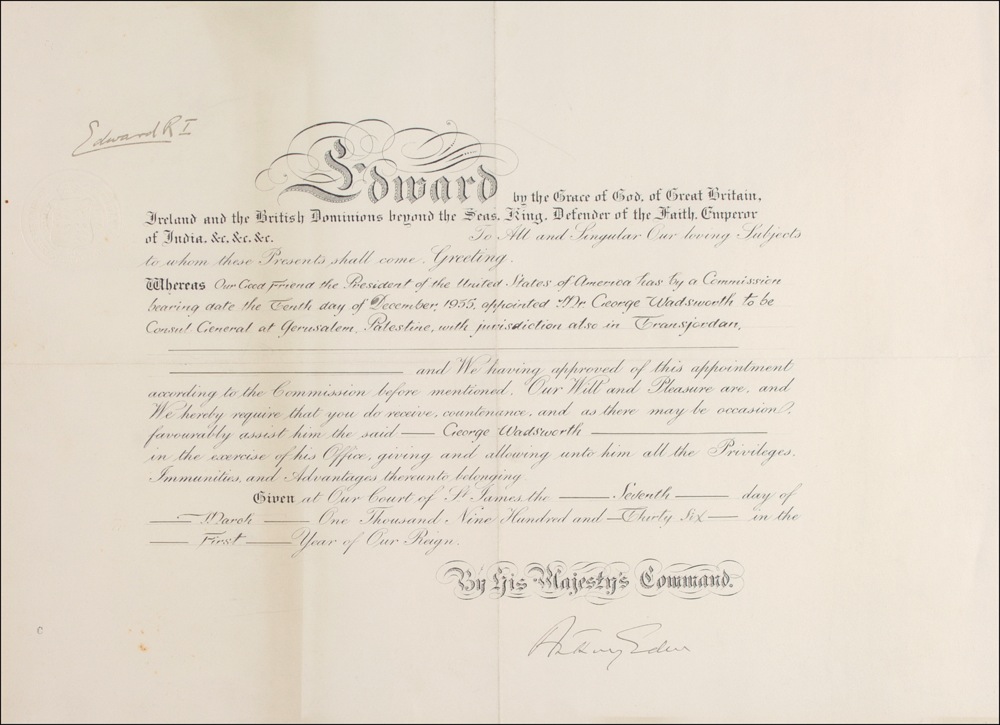 Edward R I
Edward by the Grace of God, of Great Britain,
Ireland and the British Dominions beyond the Seas, King, Defender of the Faith, Emperor
of India, &c. &c. &c. To All and Singular Our loving Subjects
to whom these Presents shall come, Greeting.
Whereas Our Good Friend the President of the United States of America has by a Commission
bearing date the Tenth day of December, 1935, appointed Mr George Wadsworth to be
Consul General at Jerusalem, Palestine, with jurisdiction also in Transjordan,
and We having approved of this appointment
according to the Commission before mentioned, Our Will and Pleasure are, and
We hereby require that you do receive, countenance, and as there may be occasion,
favourably assist him the said George Wadsworth
in the exercise of his Office, giving and allowing unto him all the Privileges,
Immunities, and Advantages thereunto belonging
Given at Our Court of St James, the Seventh day of
March One Thousand Nine Hundred and Thirty Six in the
First Year of Our Reign.
By His Majesty's Command.
Anthony Eden